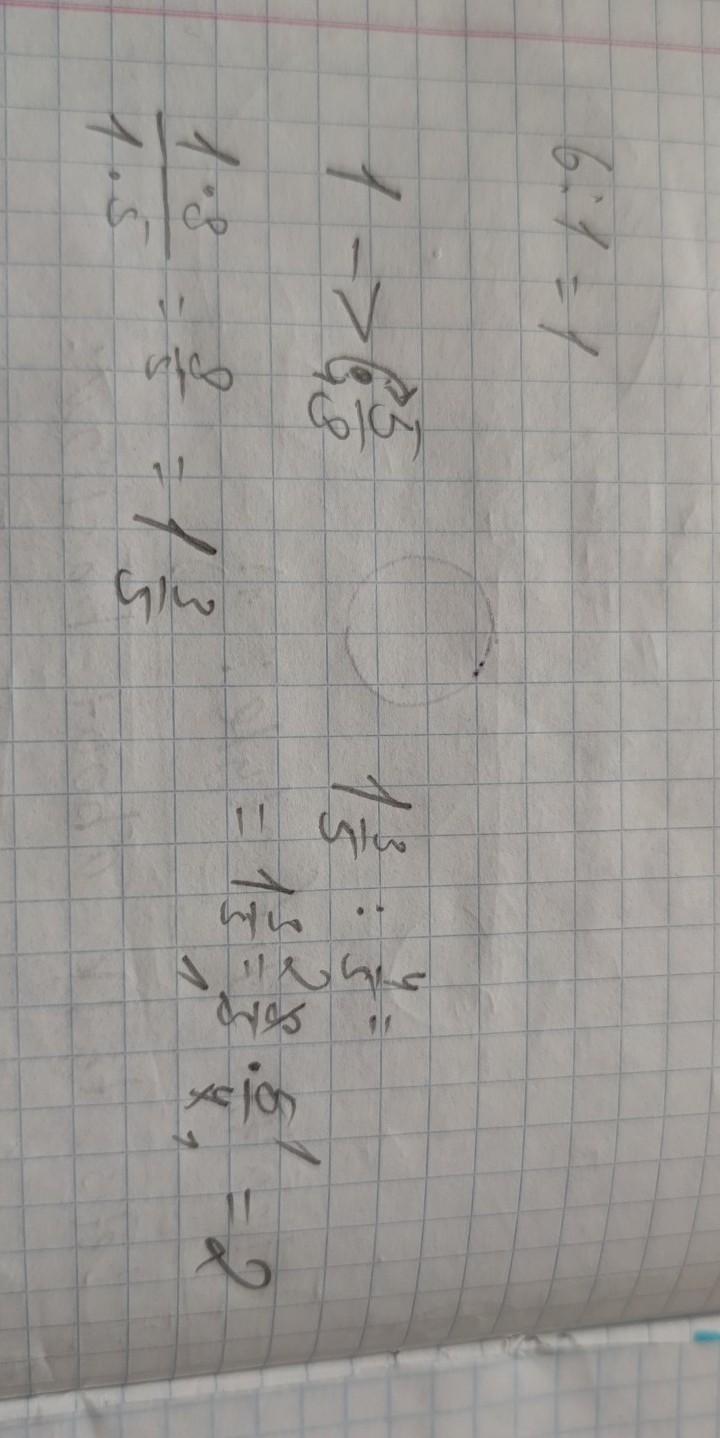 6:1 = 1
1 -> : 5/8
1·8/1·5 = 8/5 = 1 3/5
1 3/5 : 4/5 =
= 1 3/5 = 8/5 · 5/4 = 2